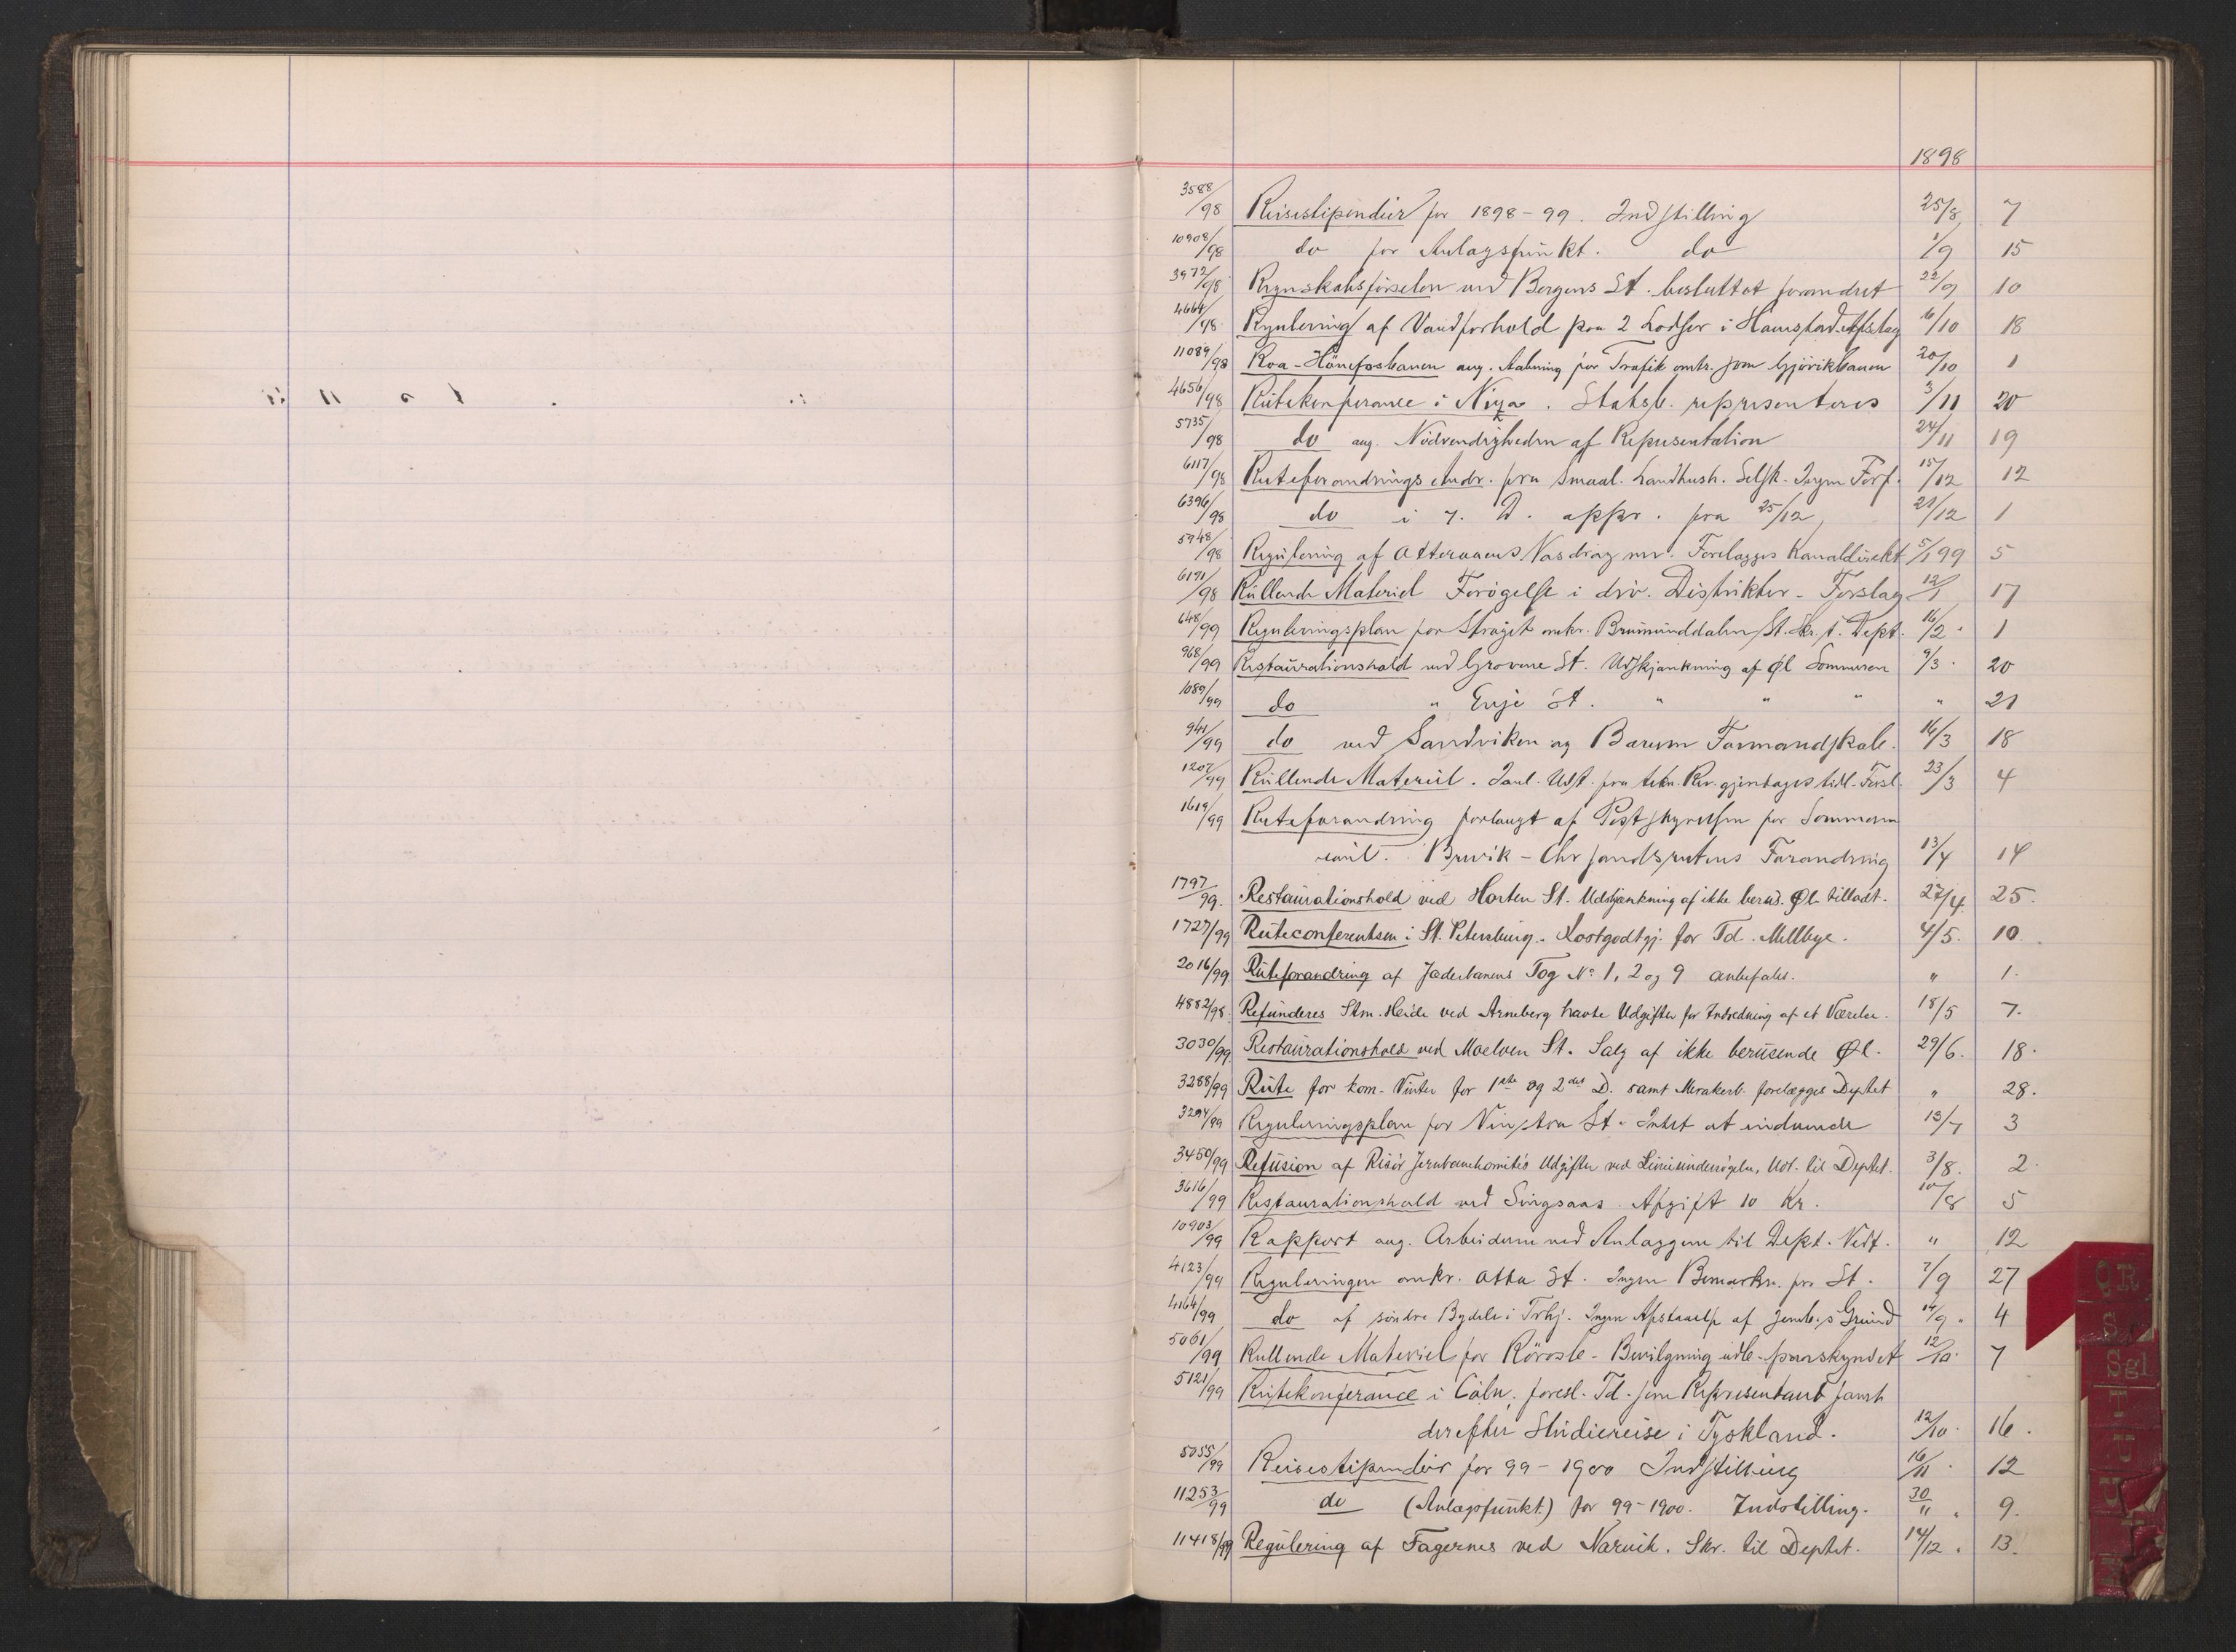 1898
3588/98 Reisestipendier for 1898-99. Indstilling 25/8 7
10908/98 do for Anlagsfunkt. do 1/9 15
3972/98 Regnskabsførselen ved Bergens St. besluttet forandret 22/9 10
4664/98 Regulering af Vandforhold paa 2 Lodser i 6/10 18
11089/98 Roa-Hönefosbanen ang. Aabning for Trafik omtr. som Gjövikbanen 20/10 1
4656/98 Rutekonferance i Nizza. Statsb. representeres 3/11 20
5735/98 do ang. Nödvendigheden af Representation 24/11 19
6117/98 Ruteforandrings Andr. fra Smaal. Landhush. Selsk. Ingen Forf. 15/12 12
6396/98 do i 7. D. appr. fra 25/12 21/12 1
5948/98 Regulering af Atteraaens Vasdrag Forelægges Kanaldirekt 5/1 99 5
6191/98 Rullende Materiel Forögelse i driv. Distrikter - Forslag 12/1 17
648/99 Reguleringsplan for Ströget omkr. Brumunddalen St. Skr. t. Dept. 16/2 1
968/99 Restaurationshold ved Grorene St. Udskjænkning af Øl Sommeren 9/3 20
1089/99 do " Evje St. " " " " 21
941/99 do ved Sandviken og Bærum Formandskab. 16/3 18
1207/99 Rullende Materiel. Udst. fra tekn. Rev. gjentages tidl. Forsl. 23/3 4
1619/99 Ruteforandring forlangt af Poststyrelsen for Sommeren
event. Brevik - Chrsandsrutens Forandring 13/4 14
1797/99. Restaurationshold ved Horten St. Udskjænkning af ikke berus. Øl tilladt. 27/4 25.
1727/99 Ruteconferentsen i St. Petersburg. Kostgodtgj. for Td. Mellbye. 4/5. 10.
2016/99 Ruteforandring af Jæderbanens Tog No 1, 2 og 9 anbefales. " 1.
4882/98. Refunderes Stm. Heide ved Arneberg havte Udgifter for Indredning af et Værelse. 18/5 7.
3030/99 Restaurationshold ved Moelven St. Salg af ikke berusende Øl. 29/6. 18.
3288/99 Rute for kom. Vinter for 1ste og 2det D. samt Merakerb. forelægges Deptet " 28.
3294/99 Reguleringsplan for Vinstra St. Intet at indvende 13/7 3
3450/99 Refusion af Risör Jernbanekomités Udgifter ved Linieundersögelse, Udt. til Deptet. 3/8. 2.
3616/99 Restaurationshold ved Singsaas. Afgift 10 Kr. 10/8 5
10903/99 Rapport ang. Arbeiderne ved Anlæggene til Dept. Vedt. " 12
4123/99 Reguleringen omkr. Otta St. Ingen Bemærkn. fra St. 7/9 27
4164/99 do af söndre Bydele i Trhj. Ingen Afstaaelse af Jernb.s Grund 14/9. 4
5061/99 Rullende Materiel for Rörosb. - Bevilgning udb. paaskyndet 12/10. 7
5121/99 Rutekonferance i Cöln, foresl. Td. som Representant samt
derefter Studiereise i Tyskland. 12/10. 16.
5055/99 Reisestipendier for 99-1900 Indstilling 16/11. 12
11253/99 do (Anlagsfunkt.) for 99-1900. Indstilling. 30/11. 9.
11418/99 Regulering af Fagernes ved Narvik. Skr. til Deptet. 14/12. 13.
QR
Sgl